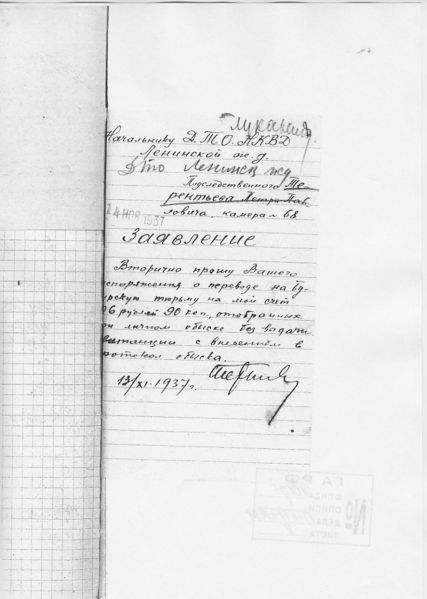 Начальнику Д.Т.О. НКВД
Ленинской ж.д.
Дто Ленинск жд
Подследственного Те-
рентьева Петра Пав-
ловича, камера № 68
14 НОЯ 1937
Заявление
Вторично прошу Вашего
споряжения о переводе на Бу-
рскую тюрьму на мой счет
96 рублей 90 коп., отобранных
ри личном обыске без выдачи
витанции с внесением в
ротокол обыска.
13/XI-1937г.
ГА РФ
ФОНД
ОПИСИ
ДЕЛА
ЛИСТА
№